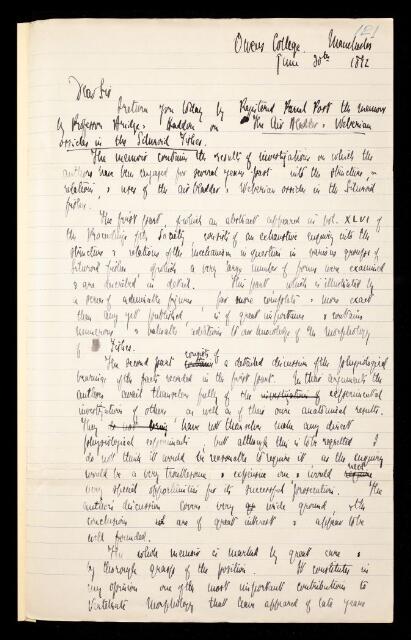 [E]
Owens College. Manchester
June 30th 1892
Dear Sir
I return you today by Registered Parcel Post the memoir
by Professor Bridge & Haddon on "The Air Bladder & Weberian
ossicles in the Siluroid Fishes.
The memoir contains the results of investigations on which the
authors have been engaged for several years past into the structure,
relations, & uses of the air bladder & Weberian ossicles in the Siluroid
fishes.
The first part, of which an abstract appeared in vol. XLVI of
the Proceedings of the Society, consists of an exhaustive enquiry into the
structure & relations of the mechanism in question in various groups of
Siluroid fishes of which a very large number of forms were examined
& are described in detail. This part, which is illustrated by
a series of admirable figures far more complete & more exact
than any yet published, is of great importance & contains
numerous & valuable additions to our knowledge of the morphology
of Fishes.
The second part consists of a detailed discussion of the physiological
bearings of the facts recorded in the first part. In their arguments the
authors avail themselves fully of the investigations of experimental
investigations of others as well as of their own anatomical results.
They do not have not themselves made any direct
physiological experiments but although this is to be regretted I
do not think it would be reasonable to require it as the enquiry
would be a very troublesome & expensive one & would need
very special opportunities for its successful prosecution. The
authors discussion covers very wide ground, & the
conclusions are of great interest & appear to be
well founded.
The whole memoir is marked by great care &
by thorough grasp of the position. It constitutes in
my opinion one of the most important contributions to
Vertebrate Morphology that have appeared of late years